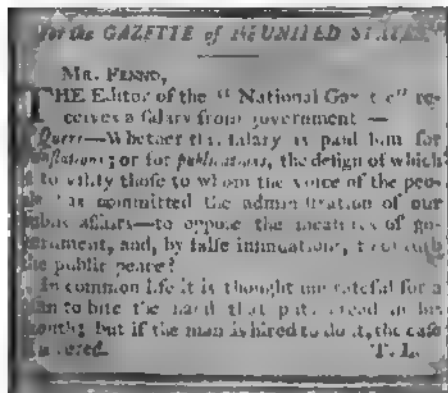 For the GAZETTE of the UNITED STATES.
MR. FENNO,
THE Editor of the "National Gazette" re-
ceives a salary from government—
Quere—Whether this salary is paid him for
; or for publications, the design of which
to vilify those to whom the voice of the peo-
has committed the administration of our
affairs—to oppose the measures of go-
vernment, and, by false insinuations, to
public peace?
In common life it is thought ungrateful for a
man to bite the hand that puts bread in his
mouth; but if the man is hired to do it, the case
T. L.